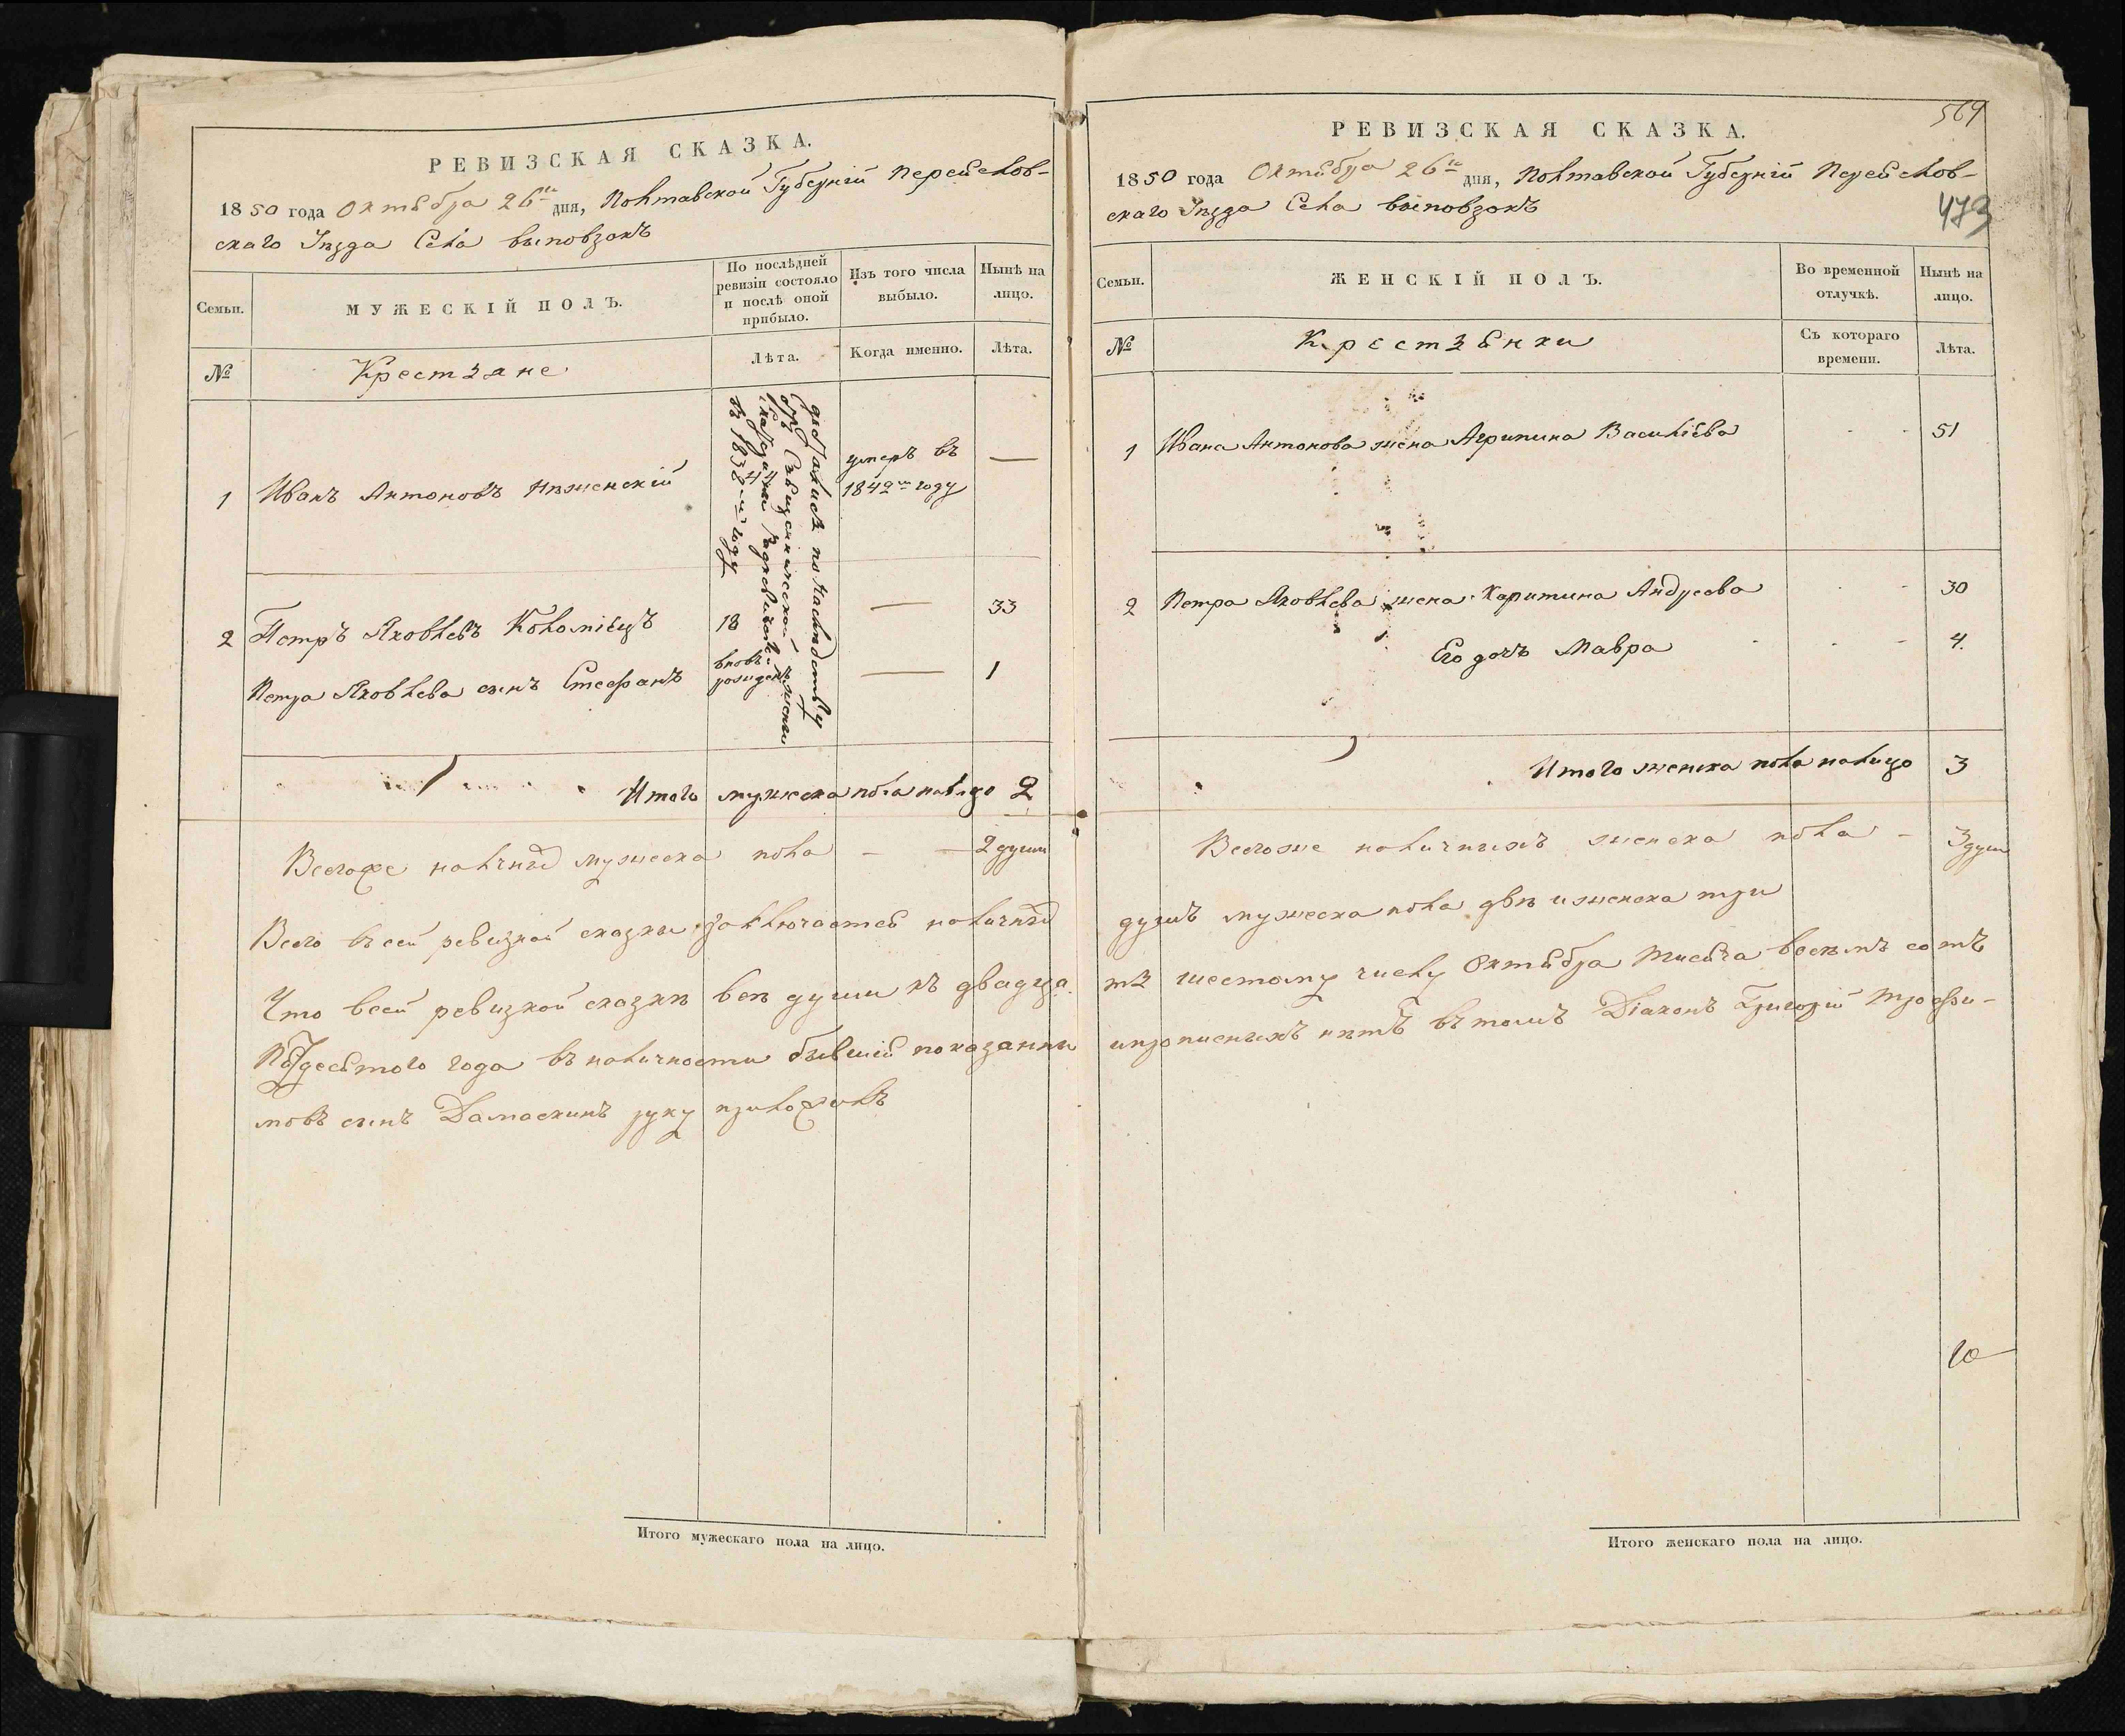 РЕВИЗСКАЯ СКАЗКА.
1850 года Октября 26го дня, Полтавской Губерніи Переяслов-
скаго Уѣзда Села Выповзокъ
Семьи.
МУЖЕСКІЙ ПОЛЪ.
По послѣдней ревизіи состояло и послѣ оной прибыло.
Изъ того числа выбыло.
Нынѣ на лицо.
№
Крестьяне
Лѣта.
Когда именно.
Лѣта.
1 Иванъ Антоновъ Нѣженскій
умеръ въ 1842м году —
достались по наслѣдству
отъ Священнической жены
въ 183 м году
2 Петръ Яковлевъ Коломіецъ 18 — 33
Петра Яковлева сынъ Стефанъ вновь рожден — 1
Итого мужеска пола налицо 2
Всегоже мужеска пола — — 2 души
Всего въ сей ревизкой сказки заключается
Что всей ревизкой сказкѣ всѣ души къ двадца
Пятдесятого года въ наличности бывшія показанны
мовъ сынъ Дамаскинъ руку приложилъ
Итого мужескаго пола на лицо.
569
РЕВИЗСКАЯ СКАЗКА.
1850 года Октября 26го дня, Полтавской Губерніи Переяслов-
скаго Уѣзда Села Выповзокъ
473
Семьи.
ЖЕНСКІЙ ПОЛЪ.
Во временной отлучкѣ.
Нынѣ на лицо.
№
Крестьянки
Съ котораго времени.
Лѣта.
1 Ивана Антонова жена Агрипина Василіева - - 51
2 Петра Яковлева жена Харитина Андреева - - 30
Его дочь Мавра - - - 4.
Итого женска пола налицо 3
Всегоже наличныхъ женска пола — 3 души
душъ мужеска пола двѣ и женска три
ть шестому числу Октября тисяча восемъ сотъ
ипрописныхъ нѣтъ въ томъ Діаконъ Григорій Трофи-
10
Итого женскаго пола на лицо.